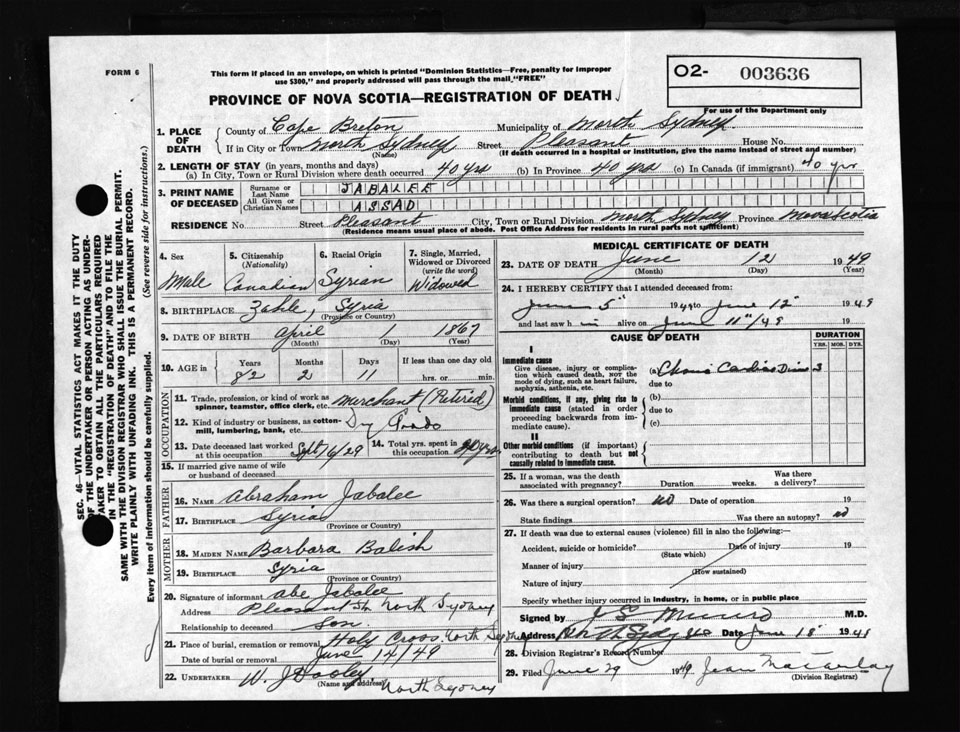 FORM 6
This form if placed in an envelope, on which is printed "Dominion Statistics—Free, penalty for improper
use $300," and properly addressed will pass through the mail, "FREE"
O2- 003636
For use of the Department only
PROVINCE OF NOVA SCOTIA—REGISTRATION OF DEATH
1. PLACE OF DEATH { County of Cape Breton Municipality of North Sydney
If in City or Town North Sydney (Name) Street Pleasant House No.
(If death occurred in a hospital or institution, give the name instead of street and number)
2. LENGTH OF STAY (in years, months and days)
(a) In City, Town or Rural Division where death occurred 40 yrs (b) In Province 40 yrs (c) In Canada (if immigrant) 40 yr
3. PRINT NAME OF DECEASED { Surname or Last Name JABALEE
All Given or Christian Names ASSAD
RESIDENCE No. Street Pleasant City, Town or Rural Division North Sydney Province Nova Scotia
(Residence means usual place of abode. Post Office Address for residents in rural parts not sufficient)
4. Sex Male
5. Citizenship (Nationality) Canadian
6. Racial Origin Syrian
7. Single, Married, Widowed or Divorced (write the word) Widowed
8. BIRTHPLACE Zahle, Syria
(Province or Country)
9. DATE OF BIRTH April 1 1867
(Month) (Day) (Year)
10. AGE in { Years 82 Months 2 Days 11 If less than one day old
hrs. or min.
OCCUPATION
11. Trade, profession, or kind of work as spinner, teamster, office clerk, etc. Merchant (Retired)
12. Kind of industry or business, as cotton-mill, lumbering, bank, etc. Dry Goods
13. Date deceased last worked at this occupation Sept/6/29 14. Total yrs. spent in this occupation 20 yrs.
15. If married give name of wife or husband of deceased
FATHER
16. NAME Abraham Jabalee
17. BIRTHPLACE Syria
(Province or Country)
MOTHER
18. MAIDEN NAME Barbara Balish
19. BIRTHPLACE Syria
(Province or Country)
20. Signature of informant Abe Jabalee
Address Pleasant St. North Sydney
Relationship to deceased Son.
21. Place of burial, cremation or removal Holy Cross, North Sydney
Date of burial or removal June 14/49
22. UNDERTAKER W. J Dooley, North Sydney
(Name and address)
MEDICAL CERTIFICATE OF DEATH
23. DATE OF DEATH June 12 1949
(Month) (Day) (Year)
24. I HEREBY CERTIFY that I attended deceased from:
June 5" 1949 to June 12" 1949
and last saw him alive on June 11"/49 19
CAUSE OF DEATH
DURATION
YRS. MOS. DYS.
I
Immediate cause
Give disease, injury or complication which caused death, not the mode of dying, such as heart failure, asphyxia, asthenia, etc.
(a)
due to
Morbid conditions, if any, giving rise to immediate cause (stated in order proceeding backwards from immediate cause).
(b)
due to
(c)
II
Other morbid conditions (if important) contributing to death but not causally related to immediate cause.
25. If a woman, was the death associated with pregnancy? Duration weeks. Was there a delivery?
26. Was there a surgical operation? no Date of operation 19
State findings Was there an autopsy? no
27. If death was due to external causes (violence) fill in also the following:—
Accident, suicide or homicide? Date of injury 19
(State which)
Manner of injury
(How sustained)
Nature of injury
Specify whether injury occurred in industry, in home, or in public place
Signed by J S Munro M.D.
Address Date June 18"
28. Division Registrar's Record Number
29. Filed June 29 1949 Jean Macaulay
(Division Registrar)
SEC. 46—VITAL STATISTICS ACT MAKES IT THE DUTY
OF THE UNDERTAKER OR PERSON ACTING AS UNDER-
TAKER TO OBTAIN ALL THE PARTICULARS REQUIRED
IN THE "REGISTRATION OF DEATH" AND TO FILE THE
SAME WITH THE DIVISION REGISTRAR WHO SHALL ISSUE THE BURIAL PERMIT.
WRITE PLAINLY WITH UNFADING INK. THIS IS A PERMANENT RECORD.
Every item of information should be carefully supplied. (See reverse side for instructions.)